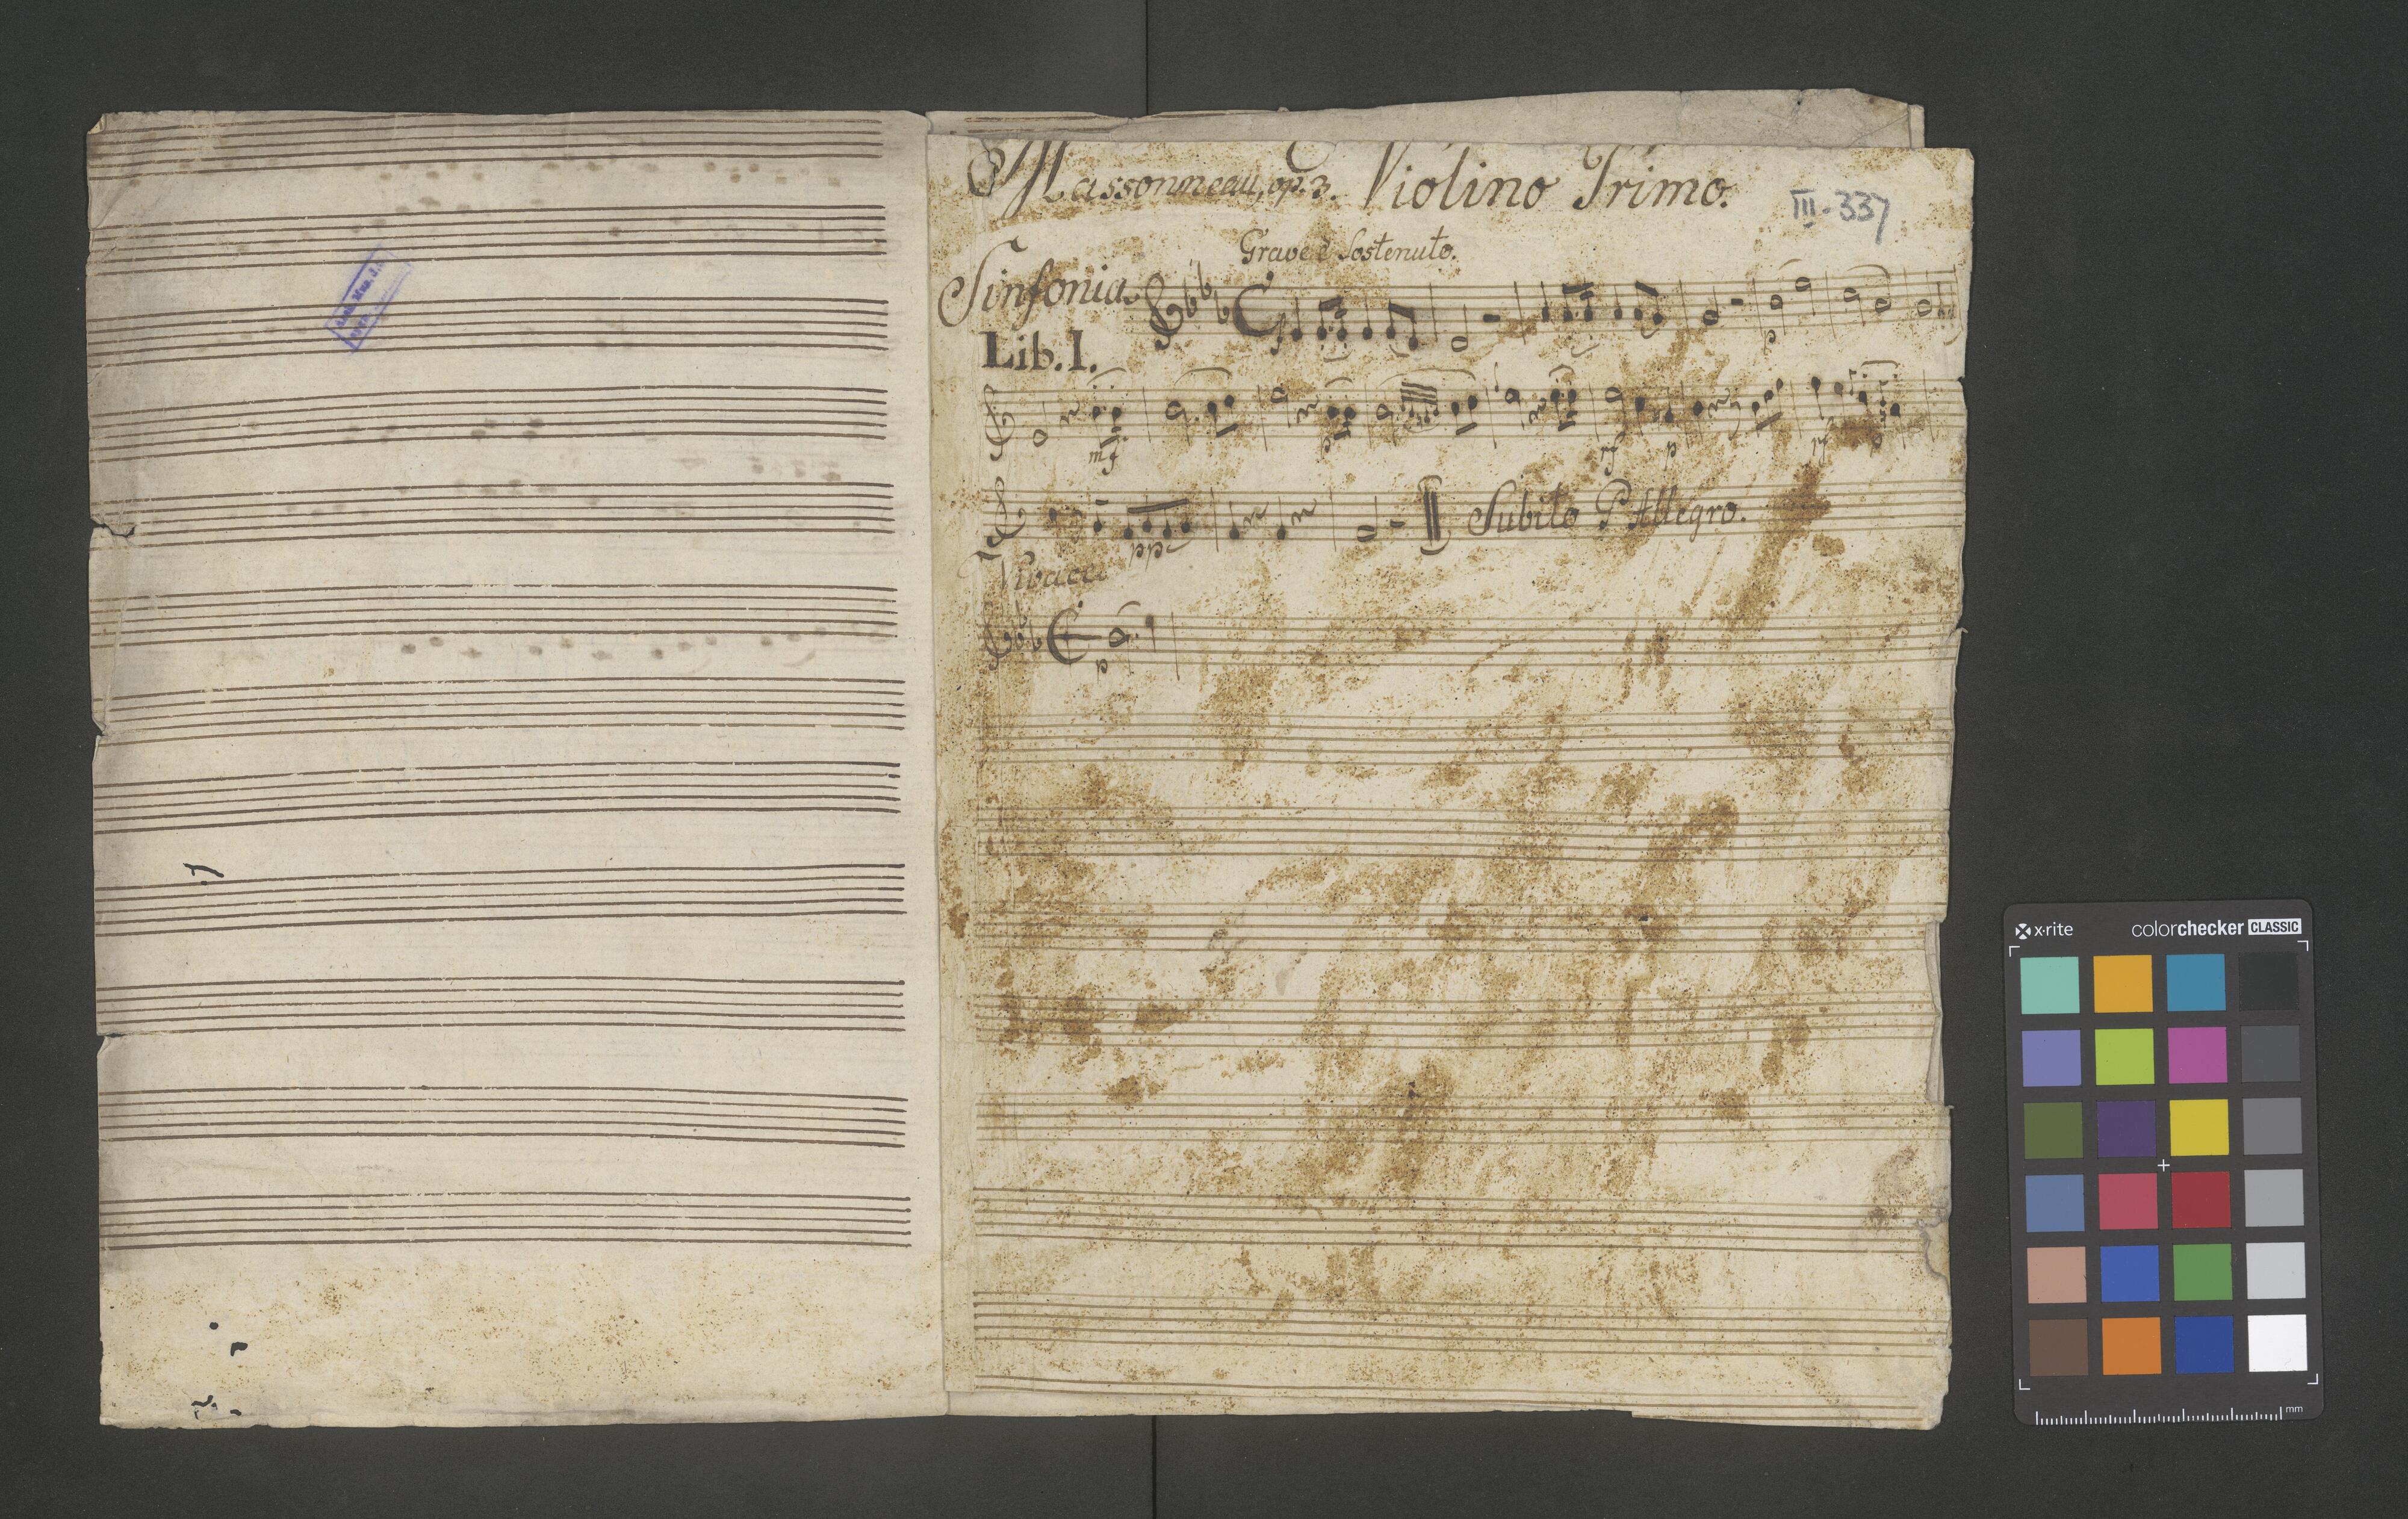 Massonneau, op. 3. Violino Primo.
III-337
Grave è Sostenuto.
Sinfonia.
Lib. I.
f
p
mf
rf
p
rf
p
Subito l'Allegro.
pp
Vivace
p
x·rite
colorchecker CLASSIC
mm